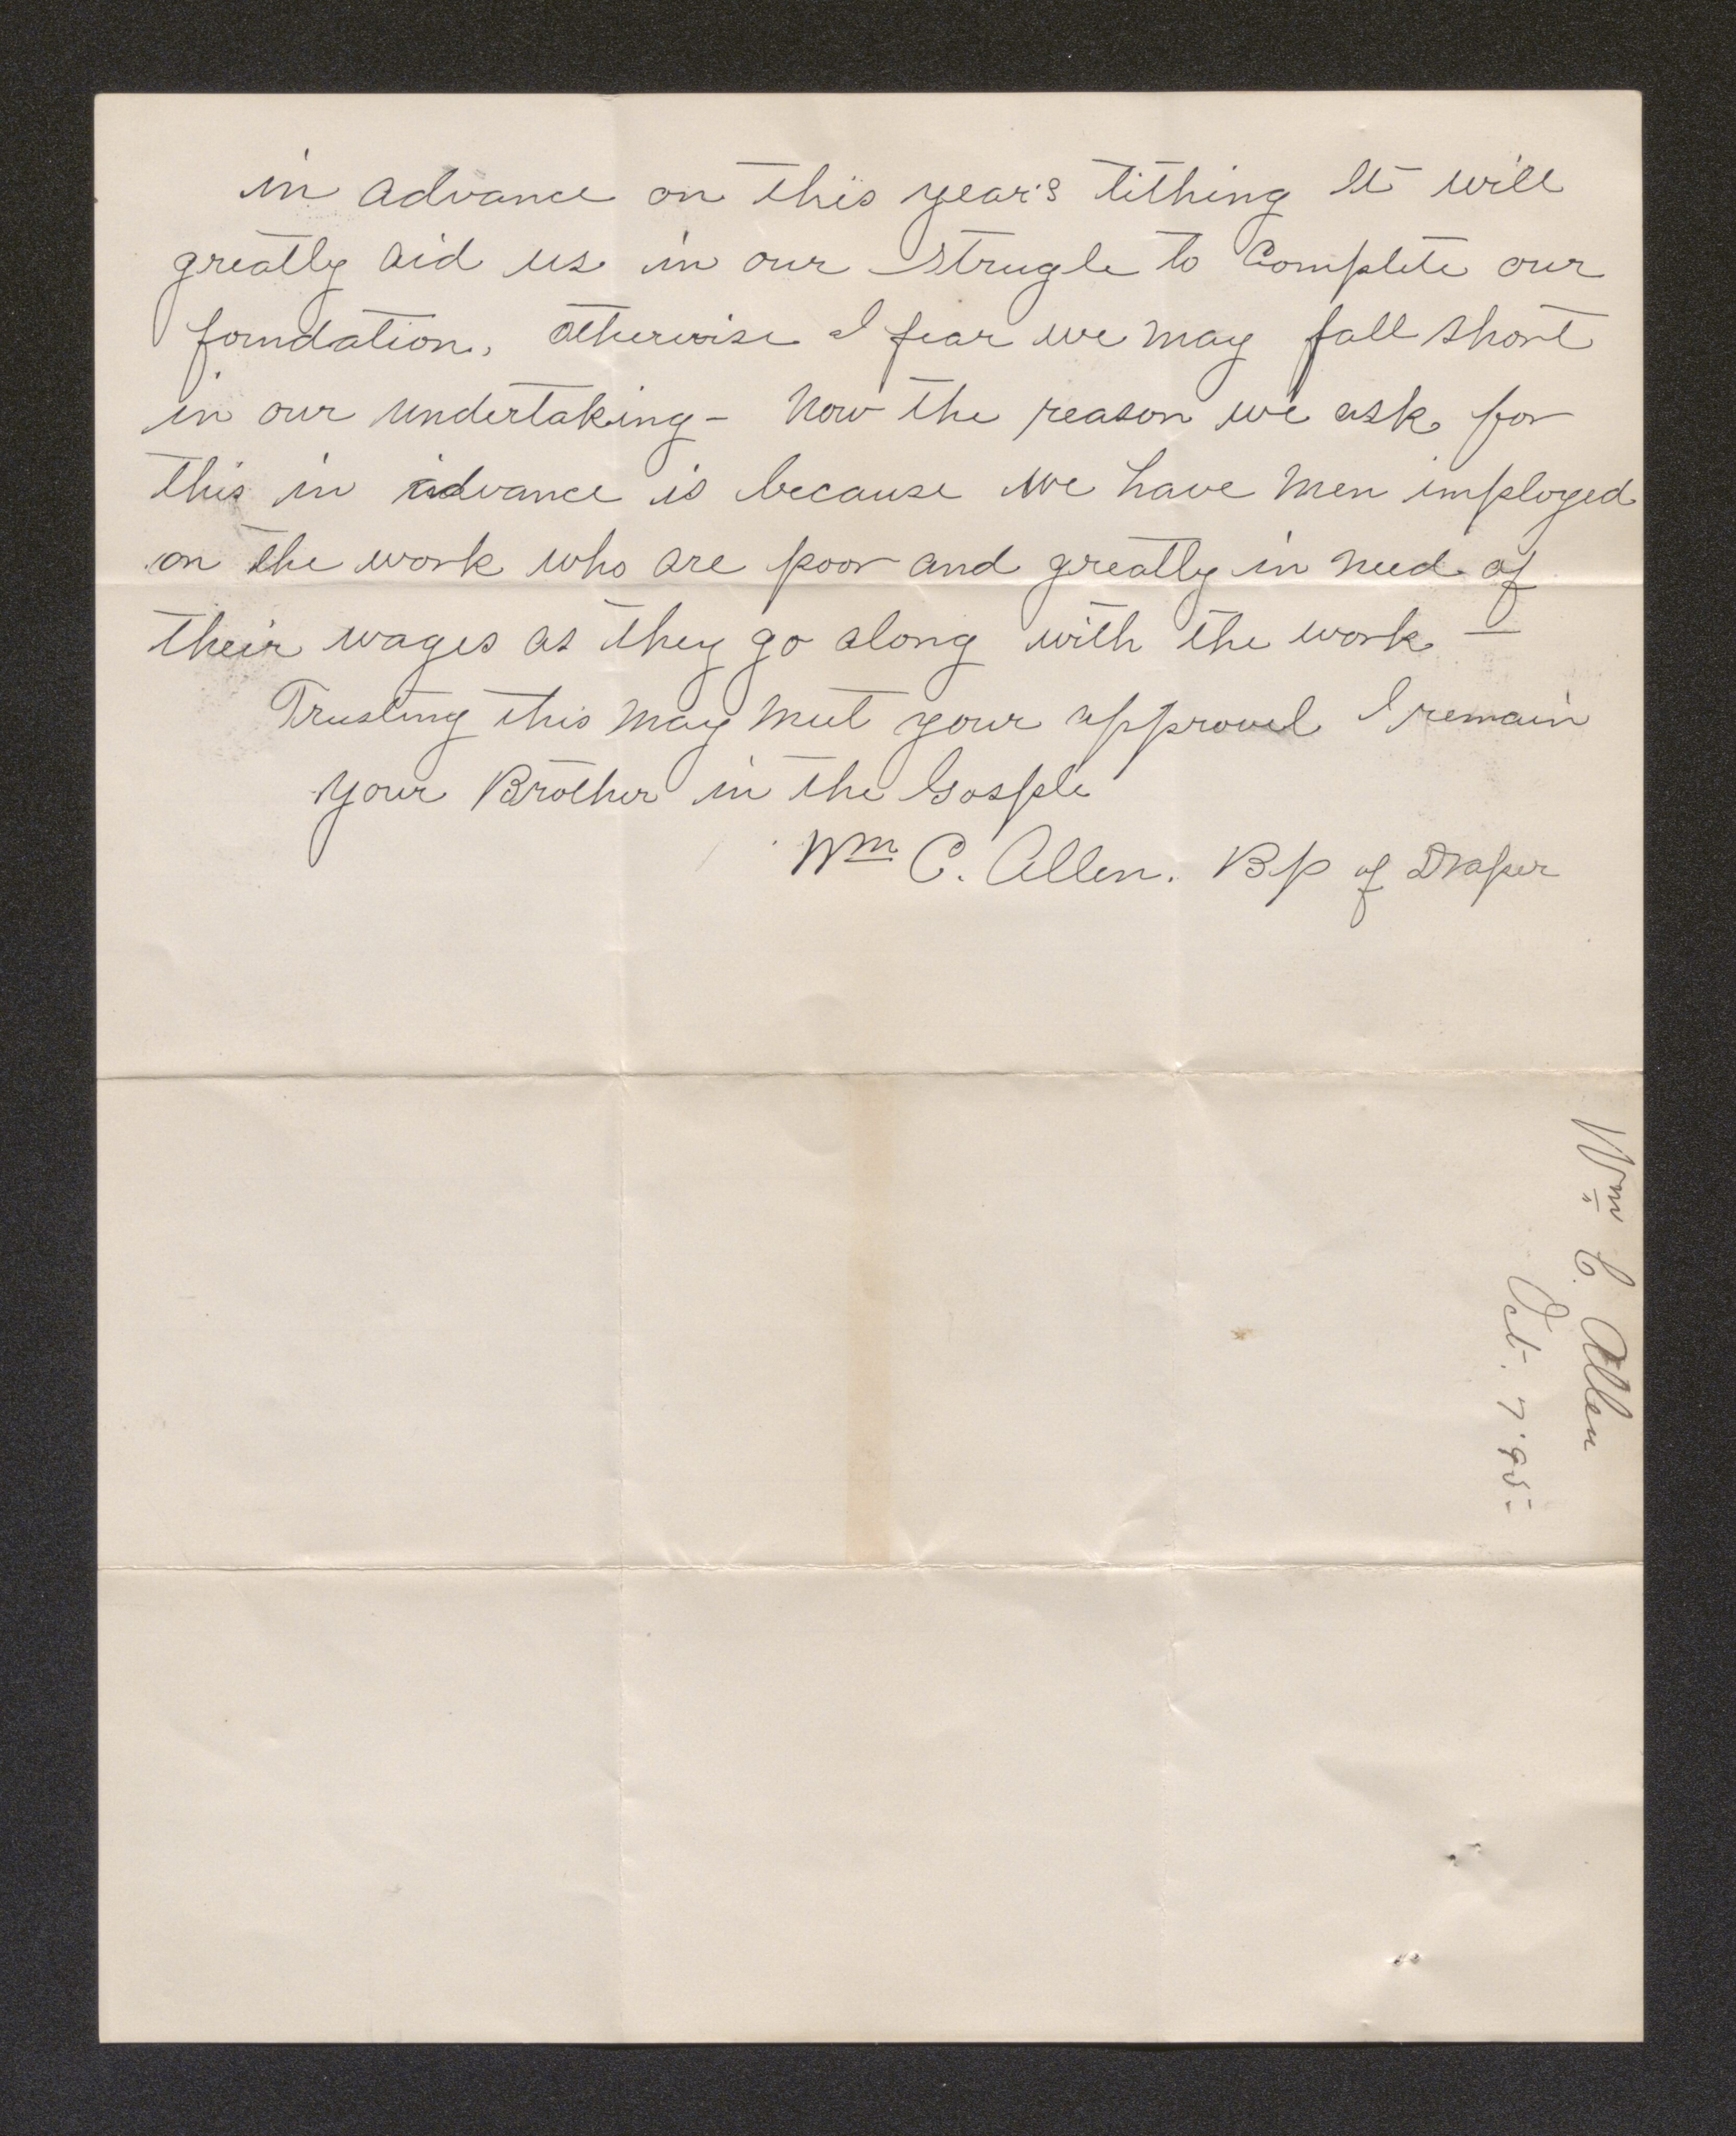 in advance on this year's tithing It will
greatly aid us in our strugle to Complete our
foundation, otherwise I fear we may fall short
in our undertaking - Now the reason we ask for
this in advance is because we have men imployed
on the work who are poor and greatly in need of
their wages as they go along with the work -
Trusting this may meet your approvel I remain
your Brother in the Gosple
Wm C. Allen. Bp of Draper
Wm C. Allen
Oct. 7. 95.